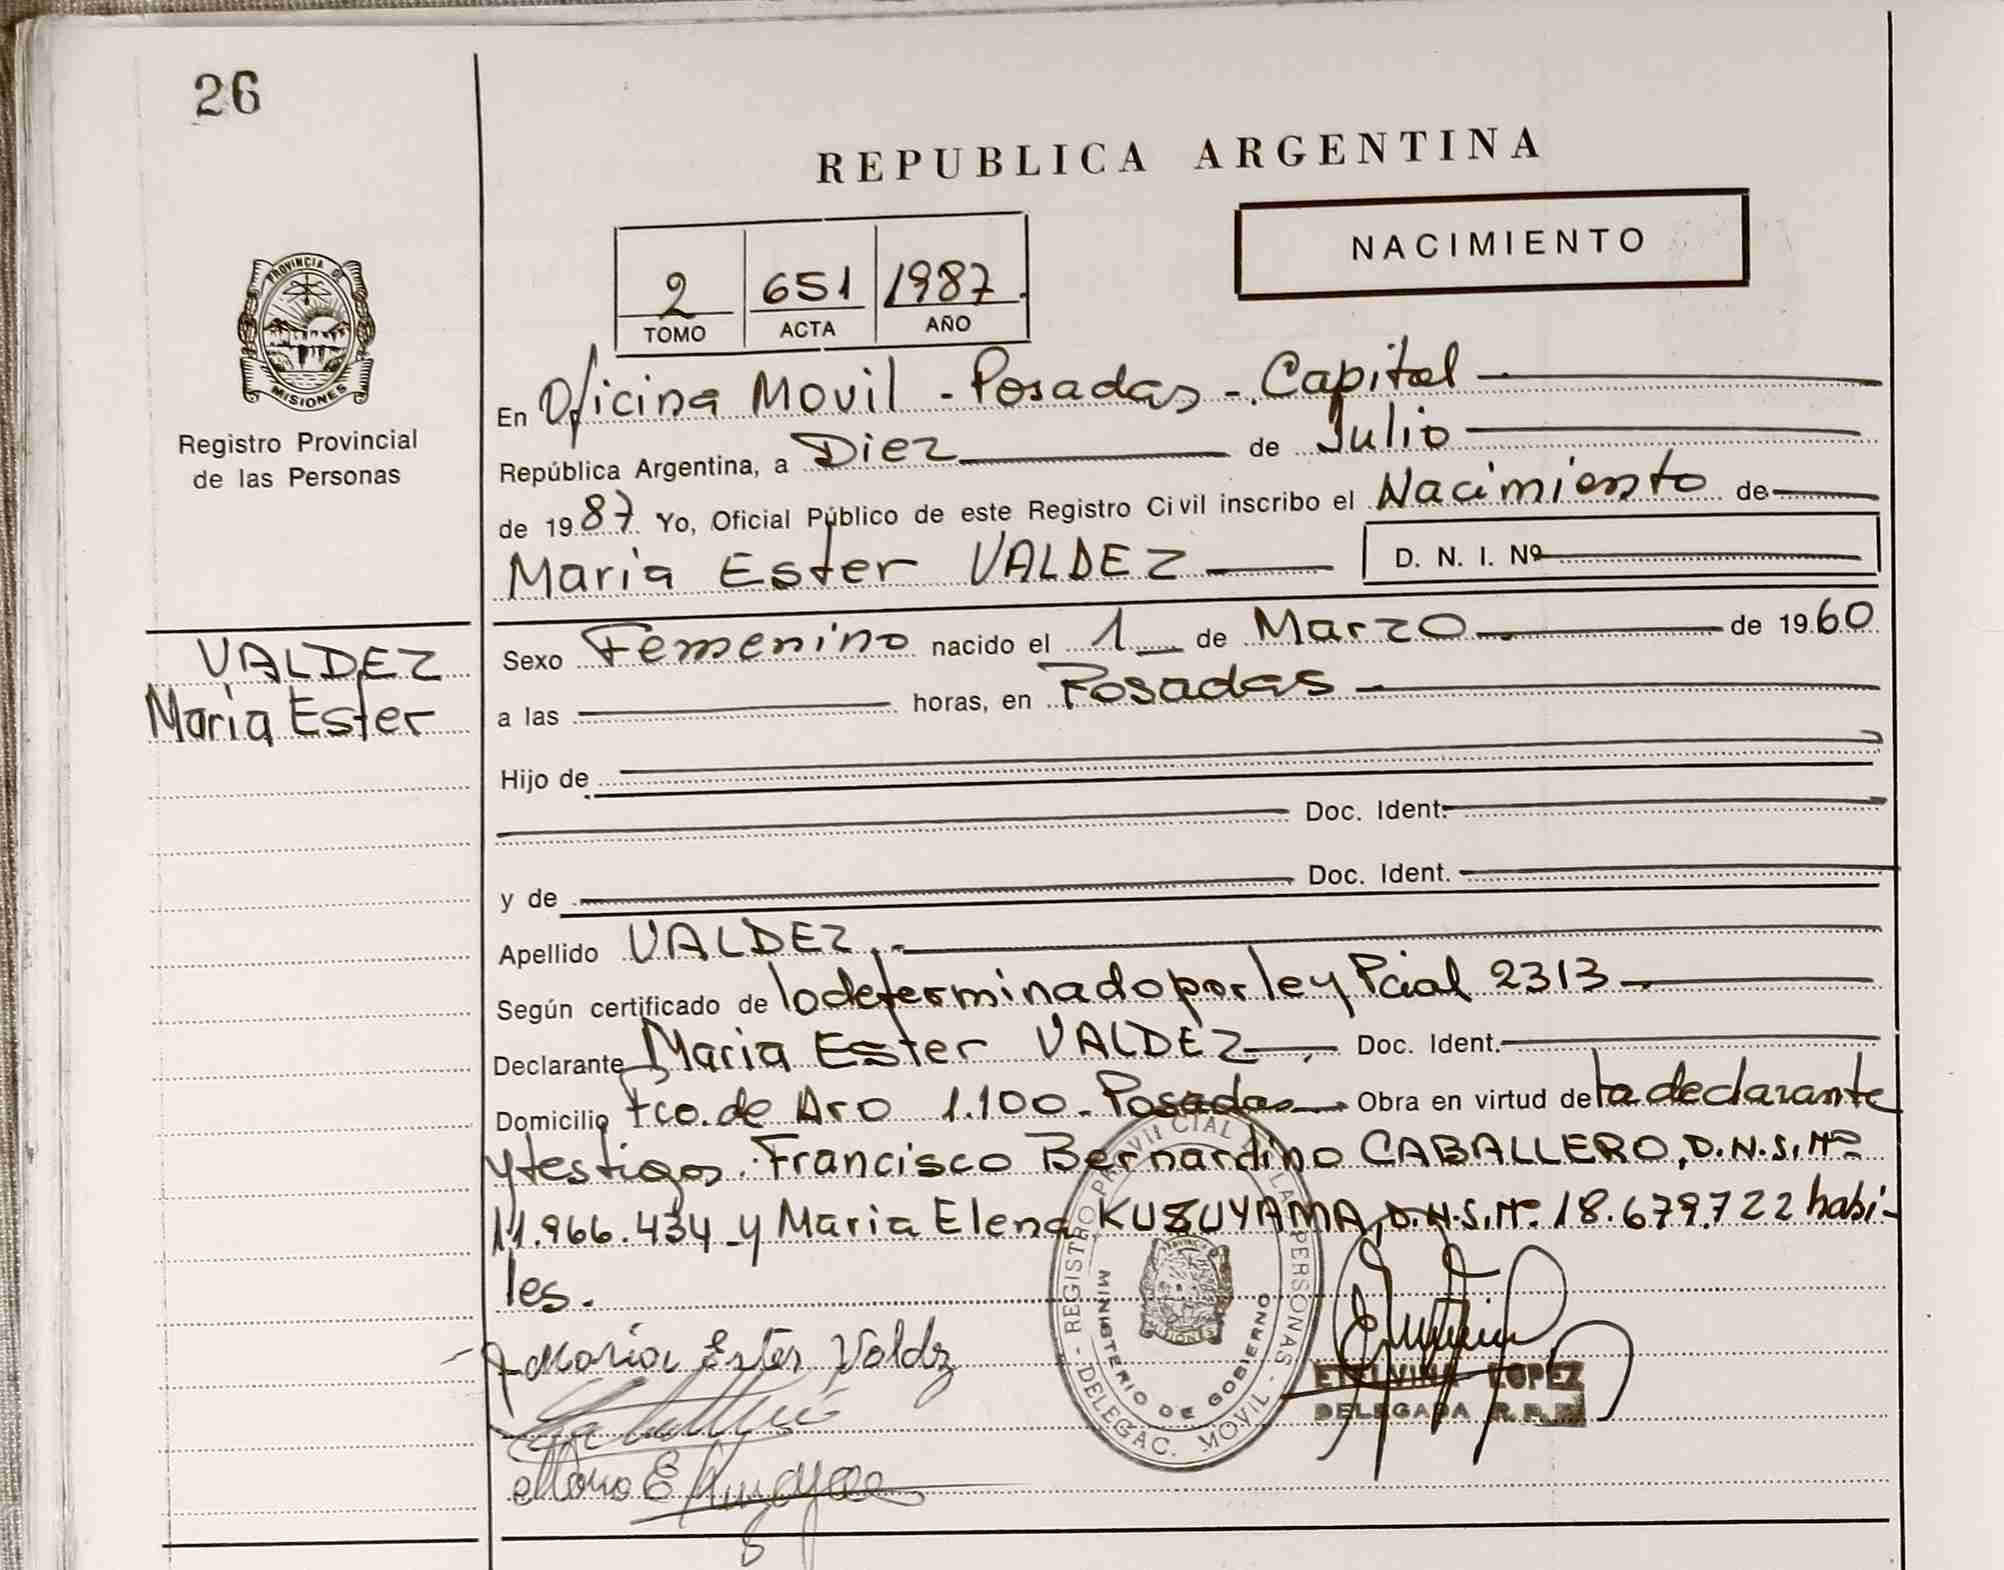 26
REPUBLICA ARGENTINA
NACIMIENTO
2 651 1987.
TOMO ACTA AÑO
PROVINCIA DE
MISIONES
Registro Provincial
de las Personas
En Oficina Movil - Posadas - Capital
República Argentina, a Diez de Julio
de 1987. Yo, Oficial Público de este Registro Civil inscribo el Nacimiento de
Maria Ester VALDEZ D. N. I. Nº
VALDEZ
Maria Ester
Sexo Femenino nacido el 1 de Marzo de 1960
a las horas, en Posadas
Hijo de
Doc. Ident.
y de Doc. Ident.
Apellido VALDEZ.-
Según certificado de lo determinado por ley Pcial 2313
Declarante Maria Ester VALDEZ Doc. Ident.
Domicilio Fco. de Aro 1.100. Posadas Obra en virtud de la declarante
y testigos. Francisco Bernardino CABALLERO, D.N.I. Nº
11.966.434 y Maria Elena KUZUYAMA, D.N.I. Nº 18.679.722 habi-
les.
Maria Ester Valdz
REGISTRO PROVINCIAL DE LAS PERSONAS - DELEGAC. MOVIL -
MINISTERIO DE GOBIERNO
ETELVINA LOPEZ
DELEGADA R.P.P.
Maria E